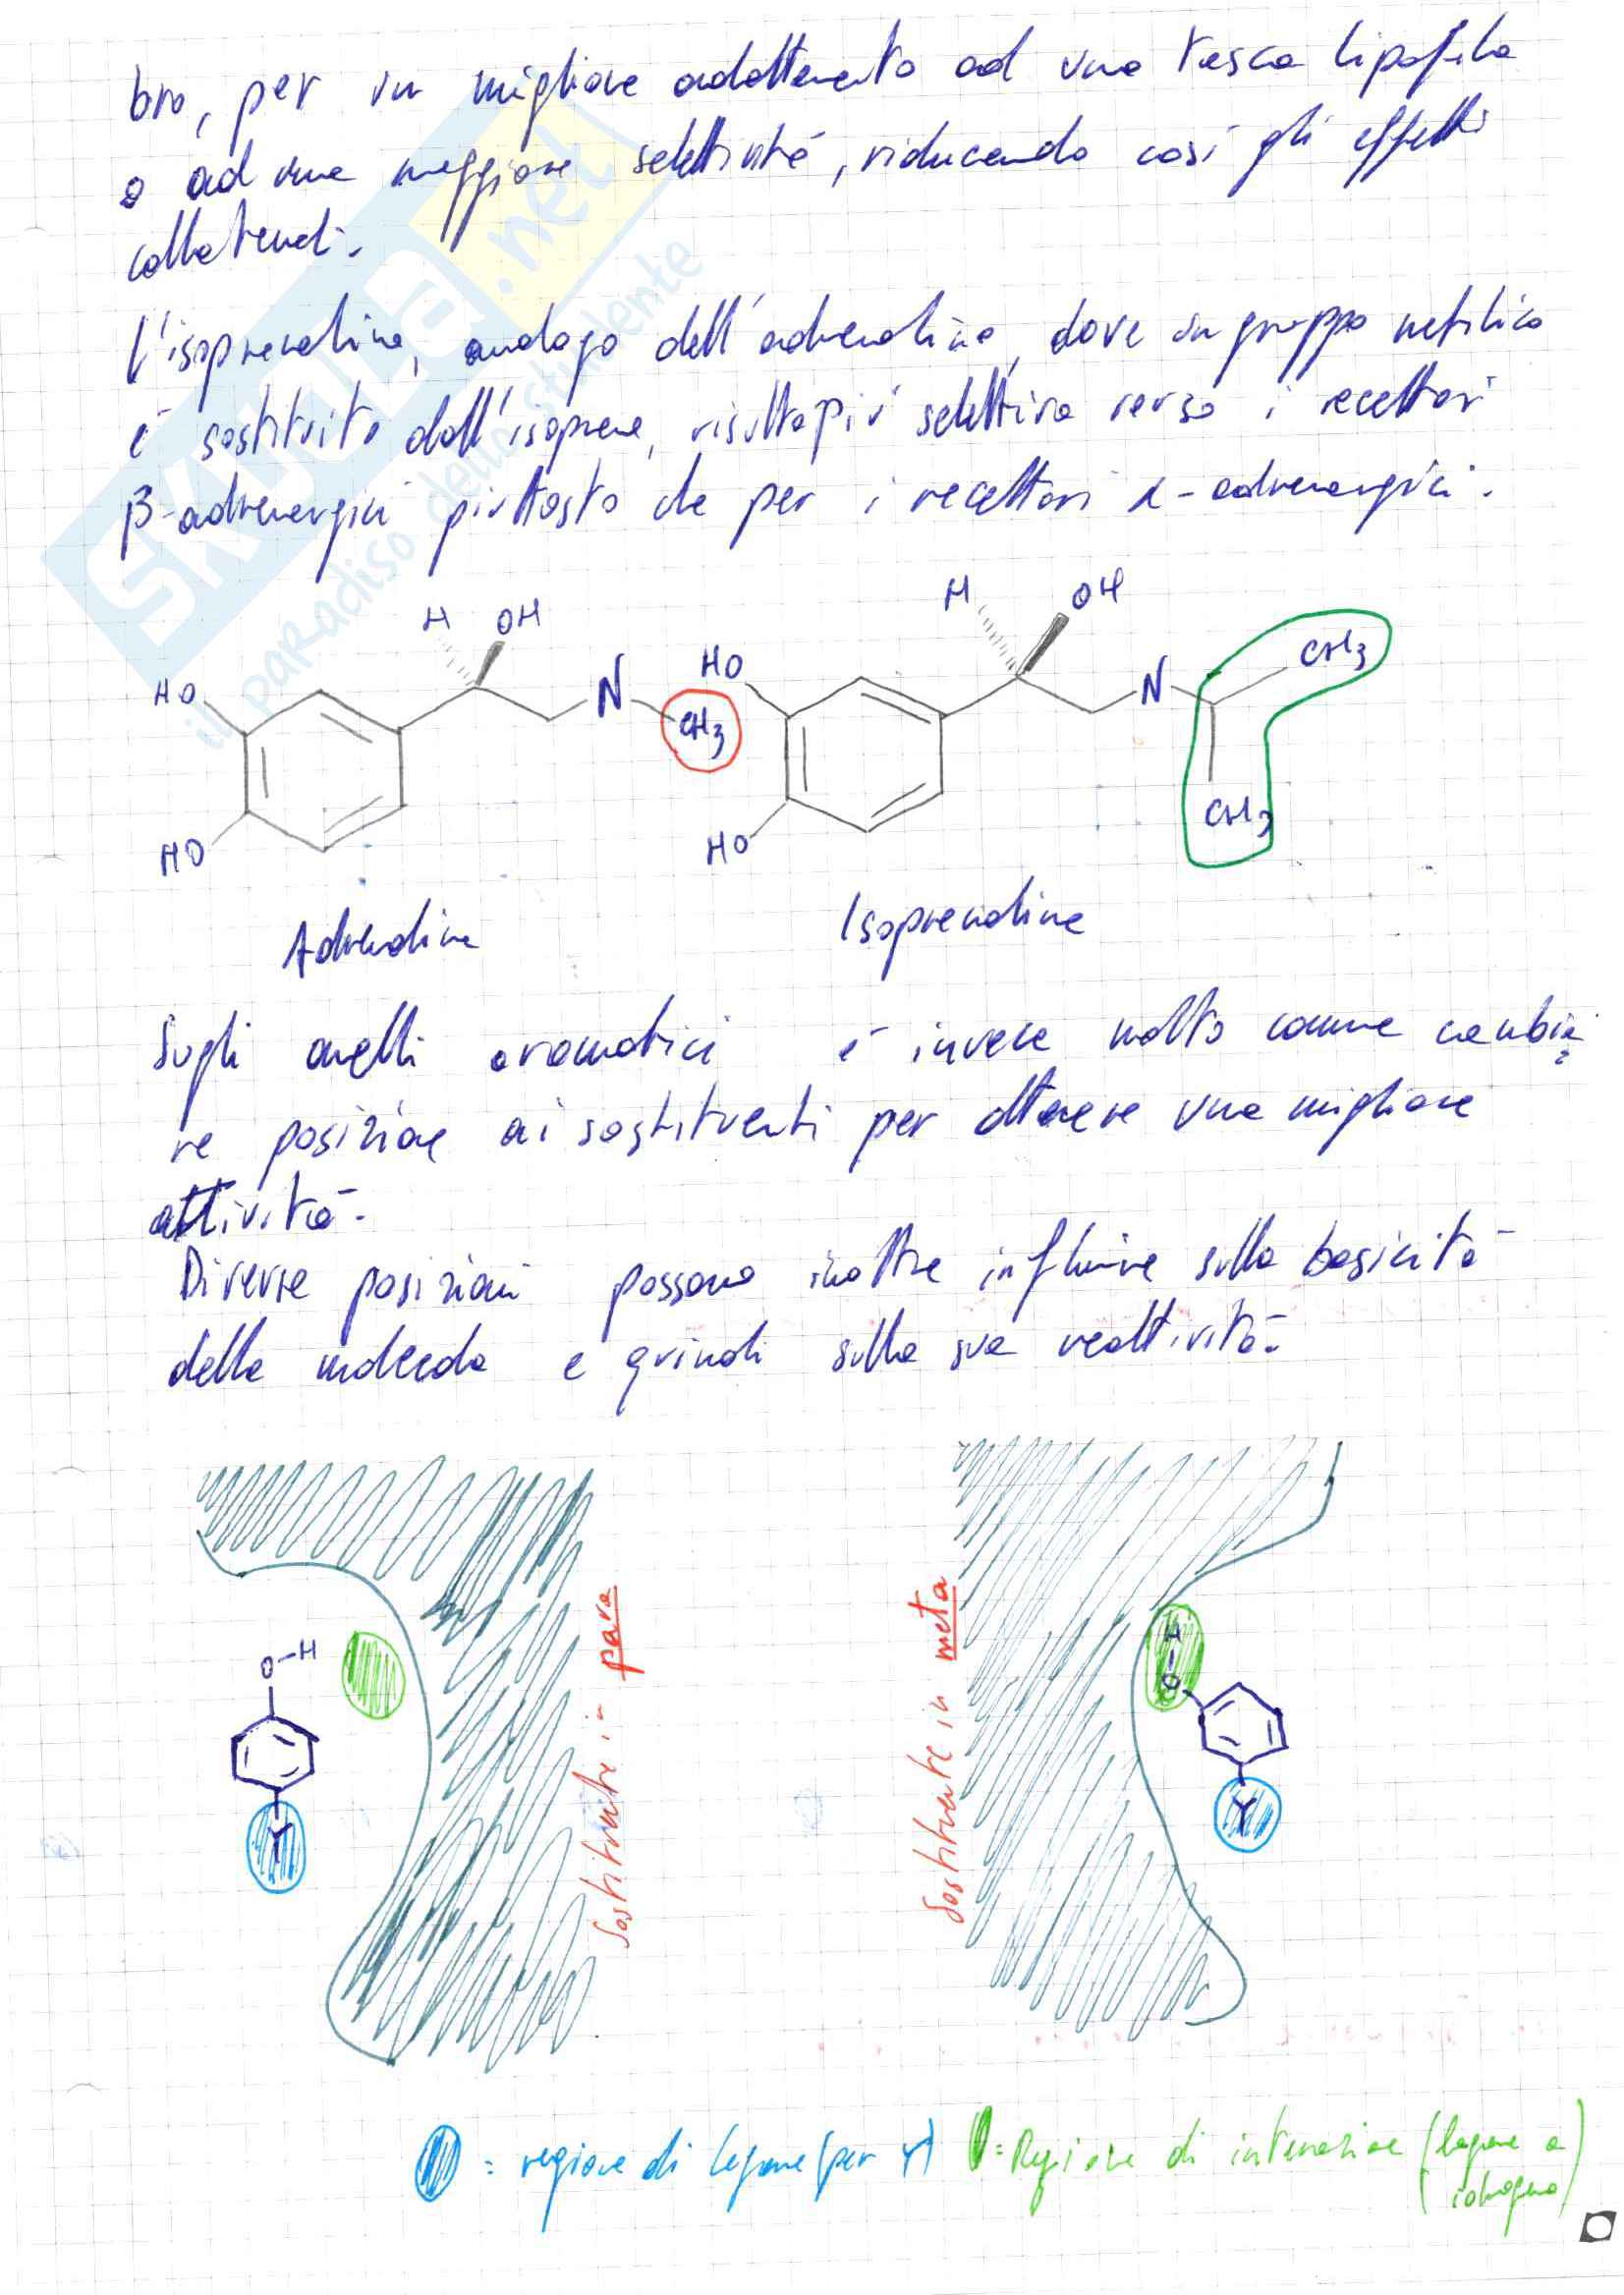 bro, per un migliore adattamento ad una tasca lipofila
o ad una maggiore selettività, riducendo così gli effetti
collaterali.
L'isoprenalina, analogo dell'adrenalina, dove un gruppo metilico
è sostituito dall'isoprene, risulta più selettiva verso i recettori
β-adrenergici piuttosto che per i recettori α-adrenergici.
H OH
HO
N
CH3
HO
Adrenalina
H OH
HO
N
CH3
CH3
HO
Isoprenalina
Sugli anelli aromatici è invece molto comune cambia
re posizione ai sostituenti per ottenere una migliore
attività.
Diverse posizioni possono inoltre influire sulla basicità
della molecola e quindi sulla sua reattività.
O-H
Y
Sostituente in para
Sostituente in meta
H-O
Y
= regione di legame (per Y)
= Regione di interazione (legame a
idrogeno)
SKUOLA.net
il paradiso dello studente